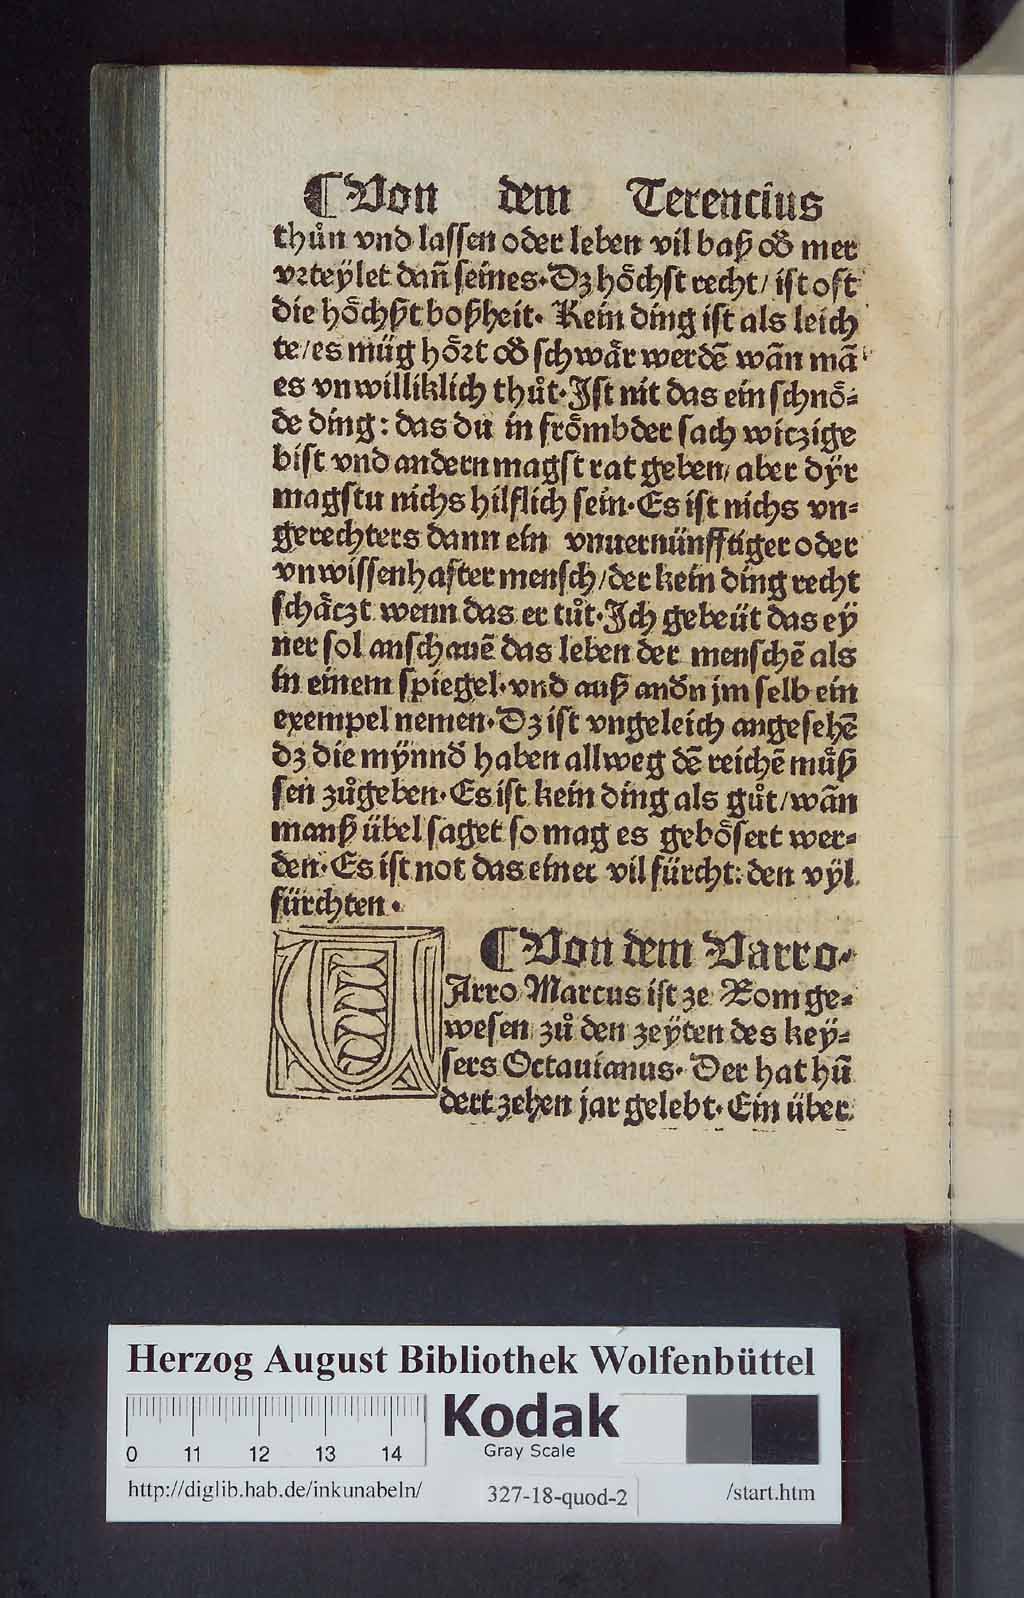 ¶ Von dem Terencius
thůn vnd lassen oder leben vil baß oď mer
vꝛteÿlet dañ seines. Dz hoͤchst recht / ist oft
die hoͤchßt boßheit. Kein ding ist als leich
te / es müg hoͤꝛt oď schwaͤr werdē wān mā
es vnwilliklich thůt. Ist nit das ein schnoͤ⸗
de ding : das du in froͤmbder sach wiczige
bist vnd andern magst rat geben / aber dÿr
magstu nichs hilflich sein. Es ist nichs vn⸗
gerechters dann ein vnuernünfftiger oder
vnwissenhafter mensch / der kein ding recht
schaͤczt wenn das er tůt. Ich gebeüt das eÿ
ner sol anschauē das leben der menschē als
in einem spiegel. vnd auß anďn jm selb ein
exempel nemen. Dz ist vngeleich angesehē
dz die mÿnnď haben allweg dē reichē můß
sen zůgeben. Es ist kein ding als gůt / wān
manß übel saget so mag es geboͤsert wer⸗
den. Es ist not das einer vil fürcht: den vÿl
fürchten.
¶ Von dem Varro.
VArro Marcus ist ze Rom ge⸗
wesen zů den zeÿten des keÿ⸗
sers Octauianus. Der hat hū
dert zehen jar gelebt. Ein über
Herzog August Bibliothek Wolfenbüttel
Kodak
Gray Scale
0 11 12 13 14
http://diglib.hab.de/inkunabeln/ 327-18-quod-2 /start.htm